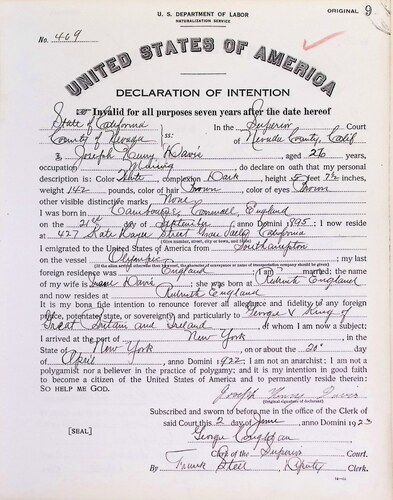 U. S. DEPARTMENT OF LABOR
NATURALIZATION SERVICE
ORIGINAL 9
No. 409
UNITED STATES OF AMERICA
DECLARATION OF INTENTION
Invalid for all purposes seven years after the date hereof
State of California
County of Nevada
ss:
In the Superior Court
of Nevada County, Calif
I, Joseph Henry Davis, aged 26 years,
occupation Mining, do declare on oath that my personal
description is: Color White, complexion Dark, height 5 feet 7½ inches,
weight 142 pounds, color of hair Brown, color of eyes Brown
other visible distinctive marks None
I was born in Camborne, Cornwall, England
on the 21st day of September, anno Domini 1895; I now reside
at 427 Kate Hayes Street Grass Valley California
(Give number, street, city or town, and State)
I emigrated to the United States of America from Southampton
on the vessel Olympic; my last
(If the alien arrived otherwise than by vessel, the character of conveyance or name of transportation company should be given)
foreign residence was England; I am married; the name
of my wife is Davis; she was born at Redruth England
and now resides at Redruth England
It is my bona fide intention to renounce forever all allegiance and fidelity to any foreign
prince, potentate, state, or sovereignty, and particularly to George V King of
Great Britain and Ireland, of whom I am now a subject;
I arrived at the port of New York, in the
State of New York, on or about the 20 day
of April, anno Domini 1922; I am not an anarchist; I am not a
polygamist nor a believer in the practice of polygamy; and it is my intention in good faith
to become a citizen of the United States of America and to permanently reside therein:
SO HELP ME GOD.
Joseph Henry Davis
(Original signature of declarant)
Subscribed and sworn to before me in the office of the Clerk of
said Court this 2 day of June, anno Domini 1923
[SEAL]
George
Clerk of the Superior Court.
By Frank Steel, Deputy Clerk.